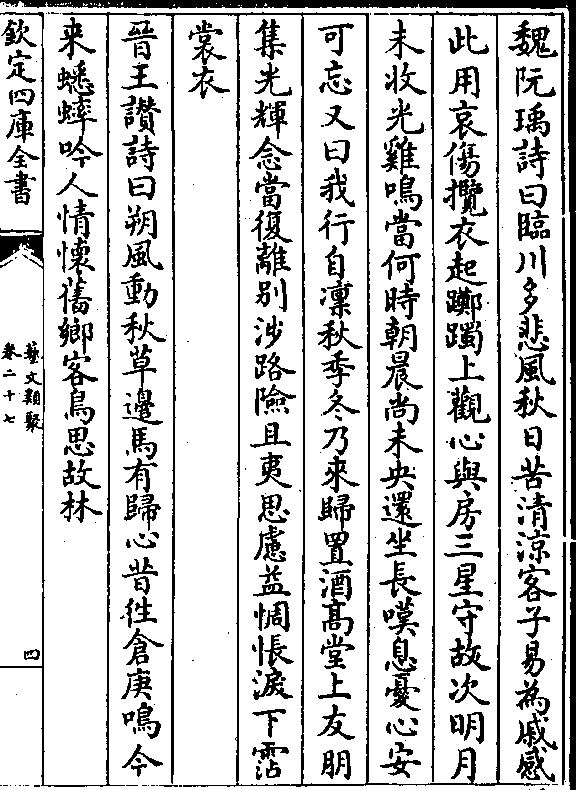 魏阮瑀詩曰臨川多悲風秋日苦清涼客子易為戚感
此用哀傷攬衣起躑躅上觀心與房三星守故次明月
未收光雞鳴當何時朝晨尚未央還坐長嘆息憂心安
可忘又曰我行自凜秋季冬乃來歸置酒髙堂上友朋
集光輝念當復離别涉路險且夷思慮益惆悵淚下霑
裳衣
晉王讃詩曰朔風動秋草邊馬有歸心昔徃倉庚鳴今
来蟋蟀吟人情懷舊鄉客鳥思故林
欽定四庫全書
藝文類聚
卷二十七
四